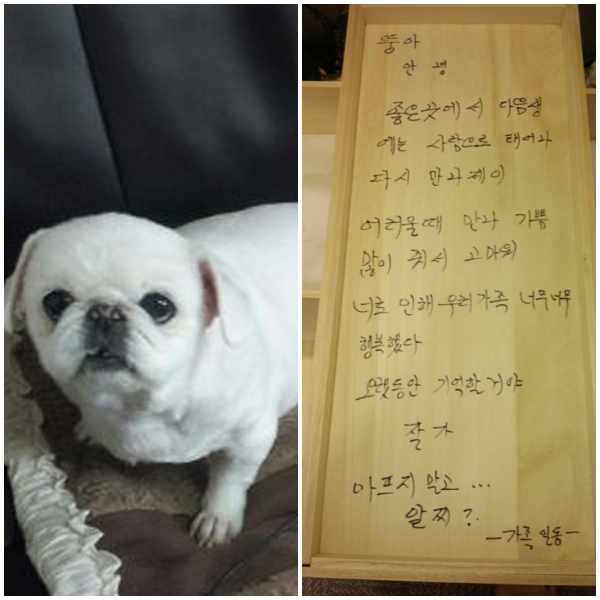 뚱아
안녕
좋은곳에서 다음생
에는 사람으로 태어나
다시 만나제이
어려울때 만나 기쁨
많이 줘서 고마워
너로 인해 우리가족 너무너무
행복했다
오랫동안 기억할거야
잘가
아프지 말고 ...
알찌?
-가족일동-